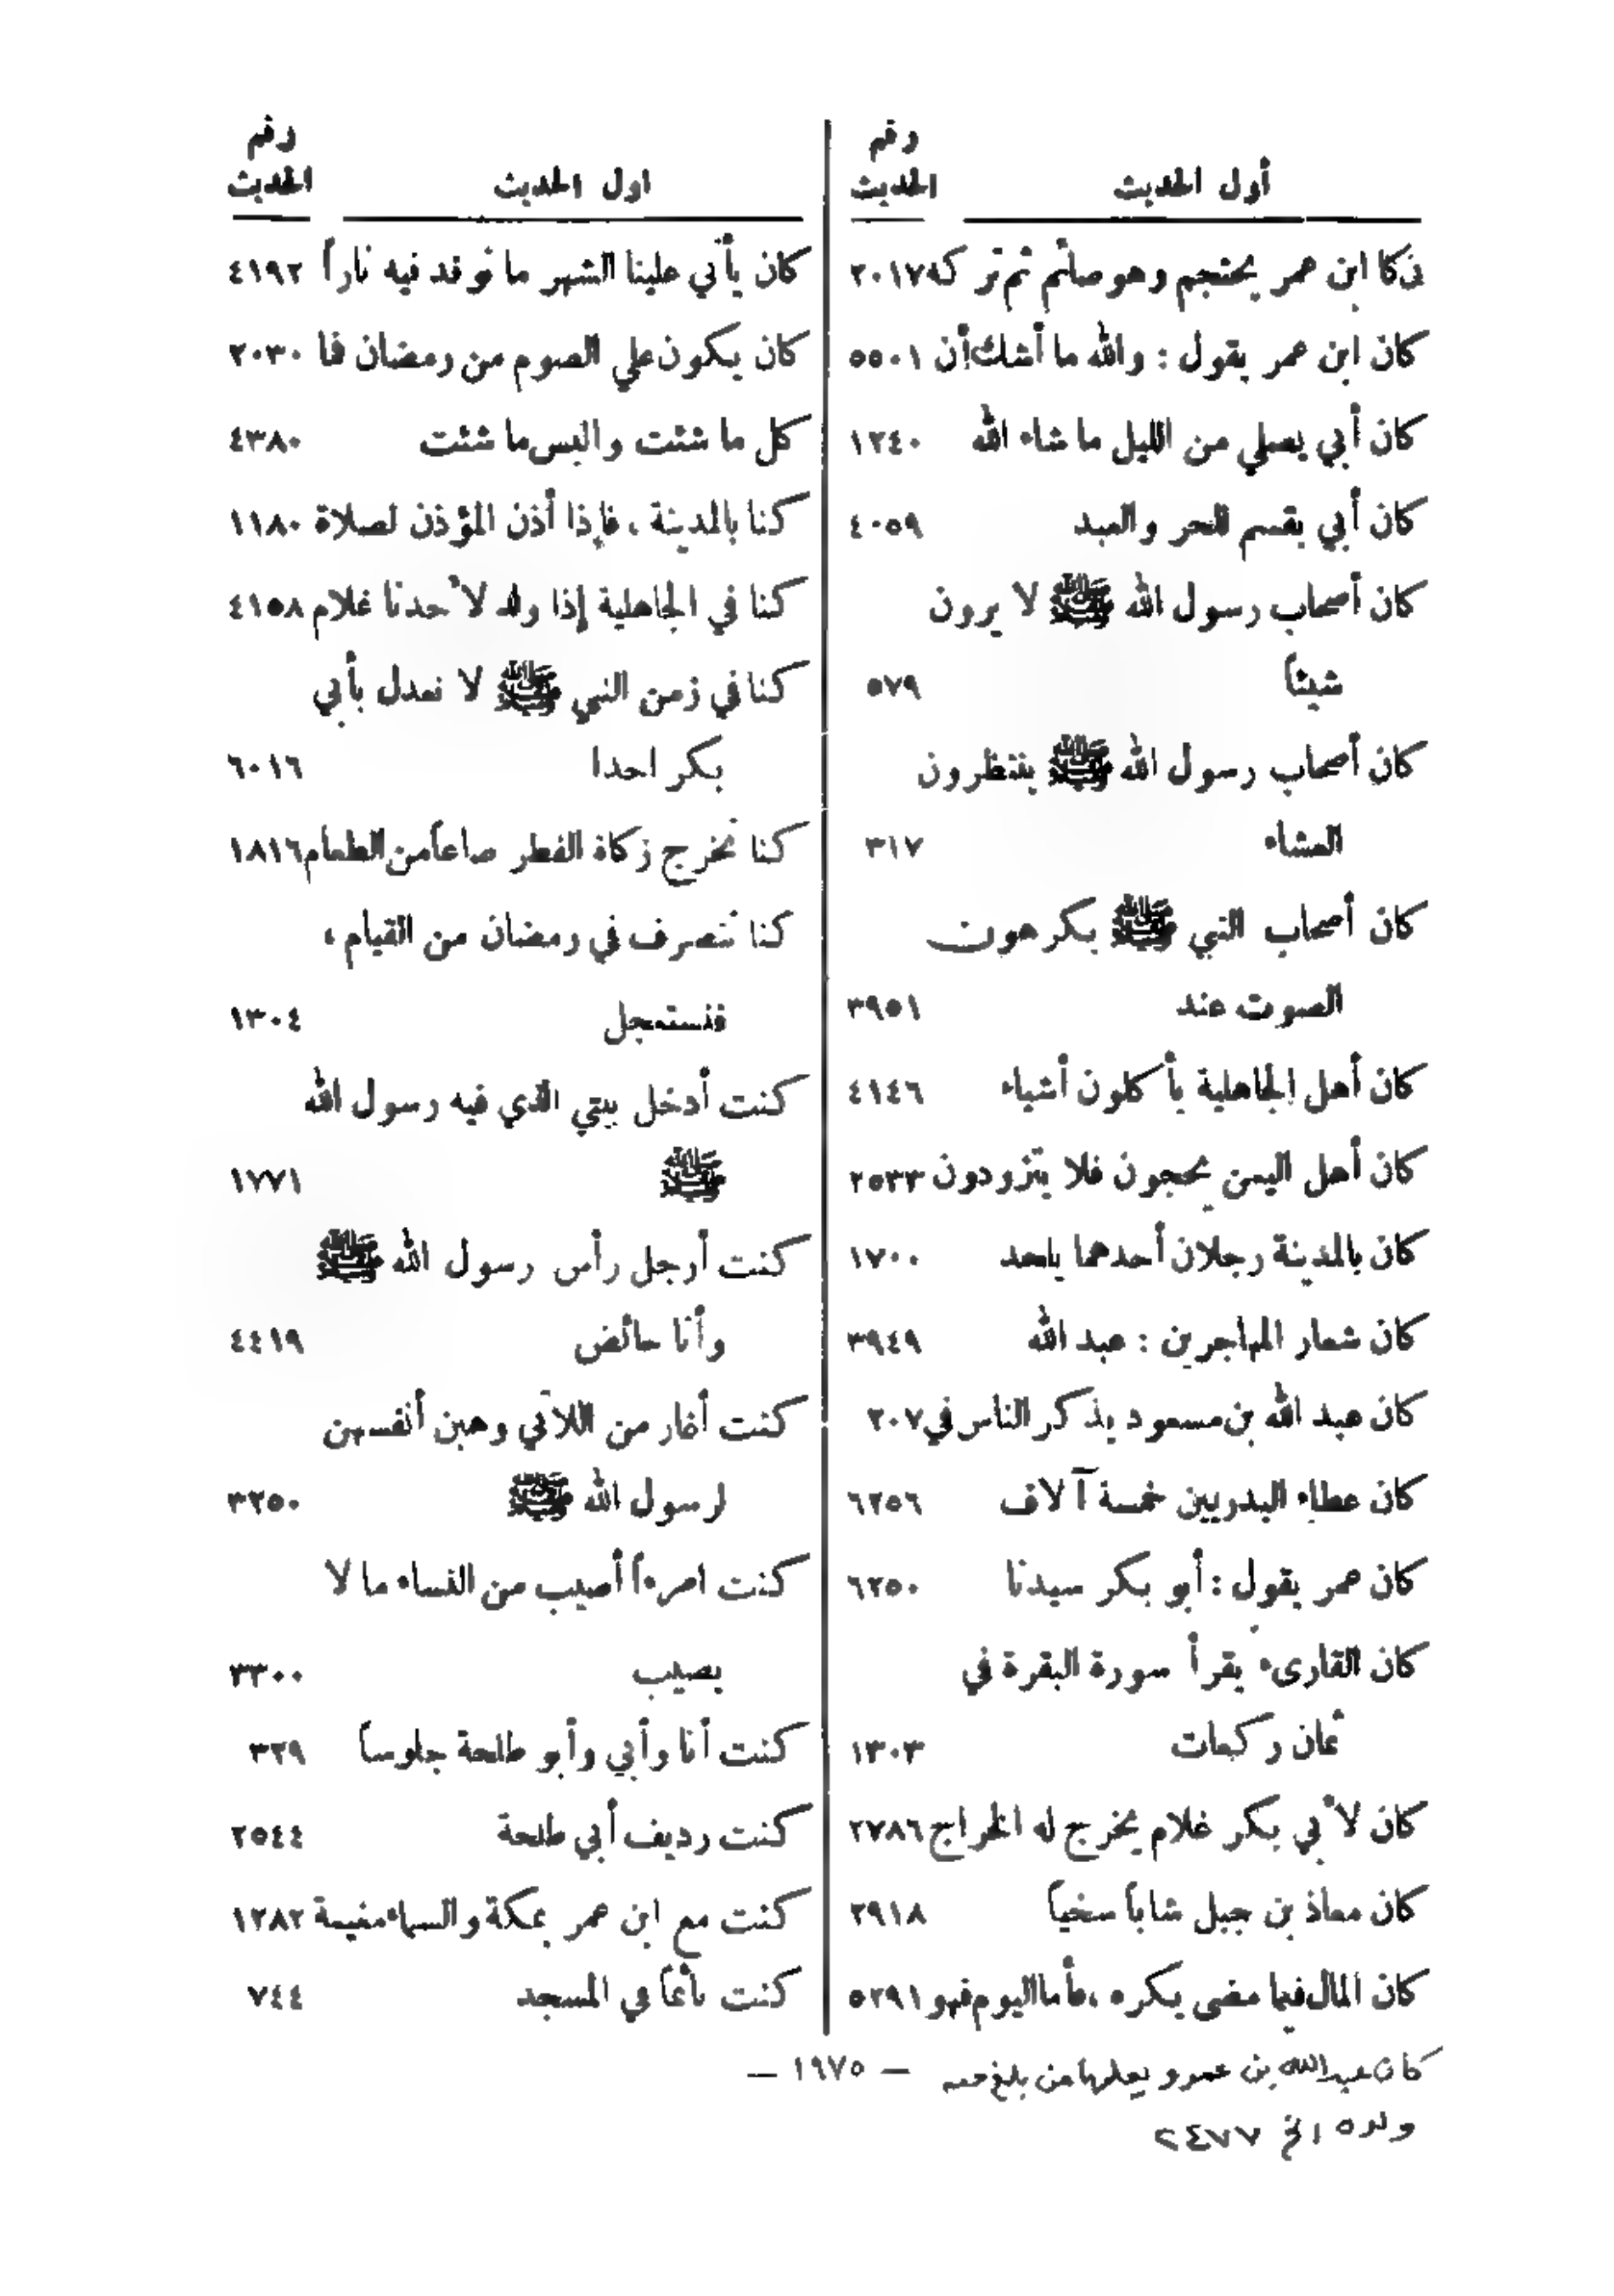 أول الحديث رقم الحديث
كان ابن عمر يحتجم وهو صائم ثم تركه ٢٠١٧
كان ابن عمر يقول : والله ما أشك أن ٥٥٠١
كان أبي يصلي من الليل ما شاء الله ١٢٤٠
كان أبي يقسم للحر والعبد ٤٠٥٩
كان أصحاب رسول الله ﷺ لا يرون
شيئاً ٥٧٩
كان أصحاب رسول الله ﷺ ينتظرون
العشاء ٣١٧
كان أصحاب النبي ﷺ يكرهون
الصوت عند ٣٩٥١
كان أهل الجاهلية يأكلون أشياء ٤١٤٦
كان أهل اليمن يحجون فلا يتزودون ٢٥٣٣
كان بالمدينة رجلان أحدهما يلحد ١٧٠٠
كان شعار المهاجرين : عبد الله ٣٩٤٩
كان عبد الله بن مسعود يذكر الناس في ٢٠٧
كان عطاء البدريين خمسة آلاف ٦٢٥٦
كان عمر يقول : أبو بكر سيدنا ٦٢٥٠
كان القارىء يقرأ سورة البقرة في
ثمان ركعات ١٣٠٣
كان لأبي بكر غلام يخرج له الخراج ٢٧٨٦
كان معاذ بن جبل شاباً سخياً ٢٩١٨
كان المال فيما مضى يكره ، فأما اليوم فهو ٥٢٩١
اول الحديث رقم الحديث
كان يأتي علينا الشهر ما نوقد فيه ناراً ٤١٩٢
كان يكون علي الصوم من رمضان فما ٢٠٣٠
كل ما شئت والبس ما شئت ٤٣٨٠
كنا بالمدينة ، فإذا أذن المؤذن لصلاة ١١٨٠
كنا في الجاهلية إذا ولد لأحدنا غلام ٤١٥٨
كنا في زمن النبي ﷺ لا نعدل بأبي
بكر احدا ٦٠١٦
كنا نخرج زكاة الفطر صاعاً من الطعام ١٨١٦
كنا ننصرف في رمضان من القيام ،
فنستعجل ١٣٠٤
كنت أدخل بيتي الذي فيه رسول الله
ﷺ ١٧٧١
كنت أرجل رأس رسول الله ﷺ
وأنا حائض ٤٤١٩
كنت أغار من اللآتي وهبن أنفسهن
لرسول الله ﷺ ٣٢٥٠
كنت امرءاً أصيب من النساء ما لا
يصيب ٣٣٠٠
كنت أنا وأبي وأبو طلحة جلوساً ٣٢٩
كنت رديف أبي طلحة ٢٥٤٤
كنت مع ابن عمر بمكة والسماء مغيمة ١٢٨٢
كنت نائماً في المسجد ٧٤٤
— ١٩٧٥ —
كان عبد الله بن عمرو يعلمها من بلغ من
ولده الخ ٢٤٧٧